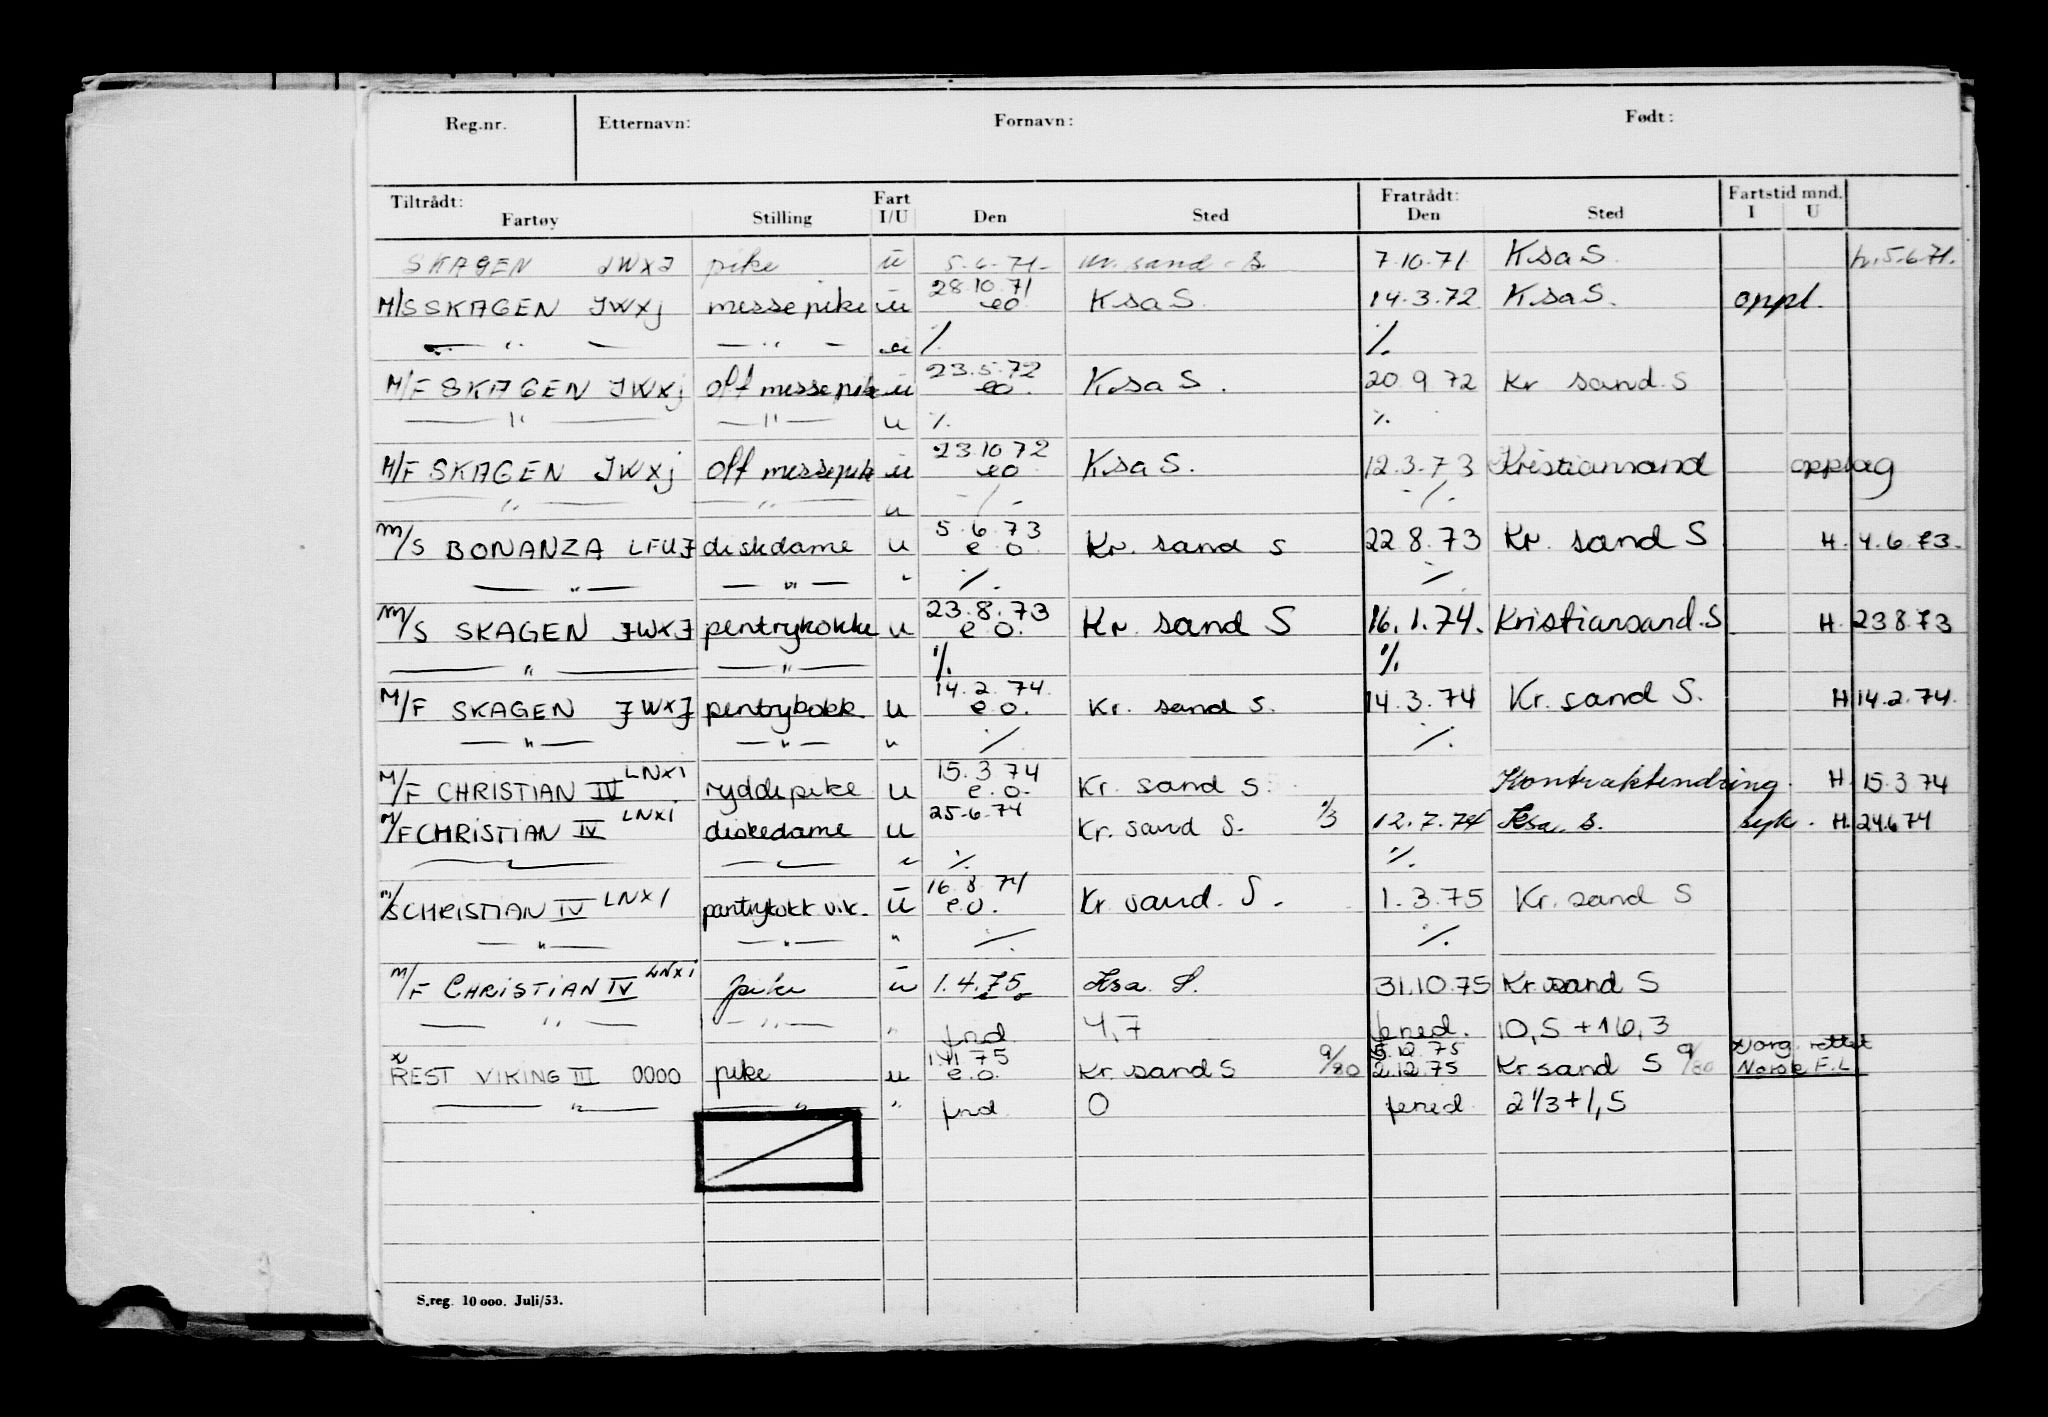 Reg.nr. Etternavn: Fornavn: Født:
Tiltrådt: Fart Fratrådt: Fartstid mnd.
Fartøy Stilling I/U Den Sted Den Sted I U
SKAGEN JWXJ pike u 5.6.71- Kr. sand. S. 7.10.71 KsaS. h. 5.6.71.
28.10.71
M/S SKAGEN JWXj messepike u eo KsaS. 14.3.72 KsaS. oppl.
— " — — " — u ⁒ ⁒
23.5.72
M/F SKAGEN JWXj off messepike u eo. KsaS. 20.9.72 Kr sand. S
— " — — " — u ⁒ ⁒
23.10.72
M/F SKAGEN JWXj off messepike u eo KsaS. 12.3.73 Kristiansand opplag
— " — — " — u -/- -/.
5.6.73
m/S BONANZA LFUJ diskdame u e.o. Kr. sand S 22.8.73 Kr. sand S H. 4.6.73.
— " — — " — " ⁒ ⁒
23.8.73
m/S SKAGEN JWXJ pentrykokke u e.o. Kr. sand S 16.1.74. Kristiansand.S H. 23873
— " — — " — ⁒ ⁒
14.2.74.
M/F SKAGEN JWXJ pentrykokk. u e.o. Kr. sand S. 14.3.74 Kr. sand S. H 14.2.74.
— " — — " — " ⁒ ⁒
15.3.74
M/F CHRISTIAN IV LNXI ryddepike u e.o. Kr. sand S. Kontraktendring. H. 15.3.74
M/F CHRISTIAN IV LNXI diskedame u 25.6.74 Kr. sand S. 1/3 12.7.74 Ksa. S. syk. H. 24674
— " — — " — " ⁒ ⁒
16.8.74
m/S CHRISTIAN IV LNXI pantrykokk vik. u e.o. Kr. sand. S. 1.3.75 Kr. sand S
— " — — " — " ⁒ ⁒
m/F CHRISTIAN IV LNXI pike u 1.4.75 eo Ksa. S. 31.10.75 Kr. sand S
— " — — " — " fnd 4,7 fened. 10,5 + 16,3
x 1.11.75 5.12.75 x) org. rettet
REST VIKING III 0000 pike u e.o. Kr. sand S 9/80 2.12.75 Kr. sand S 9/80 Norsk F.L.
— " — — " — " fnd 0 fened. 2 1/3 + 1,5
S.reg. 10 000. Juli/53.